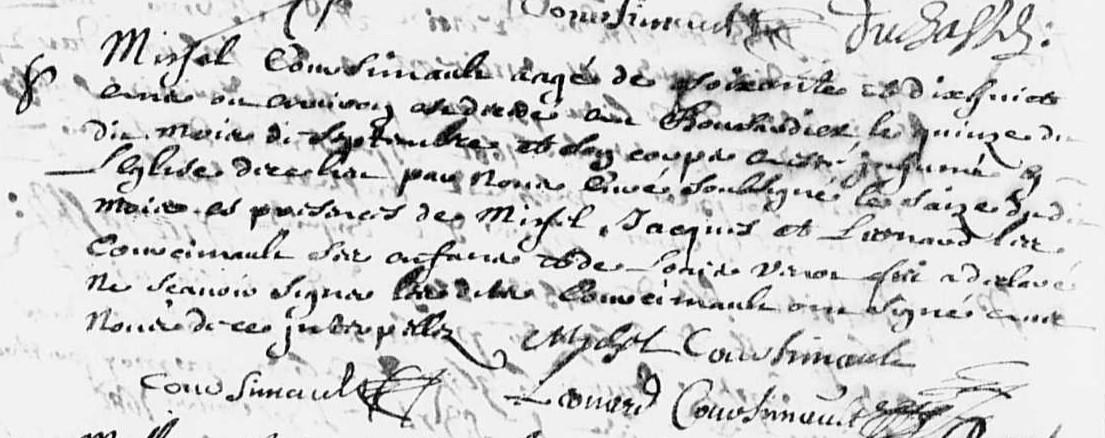 Coursimault DuChassin.
Michel Coursimault aagé de soixante et dixhuict
ans ou environ est decedé au le quinze du
dit mois de Septembre et son corps a esté inhumé en
l'Eglise de ce lieu par nous Curé soubsigné le saize dudit
mois es presences de Michel, Jacques et Leonard les
Courcimault ses enfans et de Louis qui a declaré
ne scavoir signer les dits Courcimault ont signé avec
nous de ce interpellez Michel Coursimault
Coursimault Leonard Coursimault